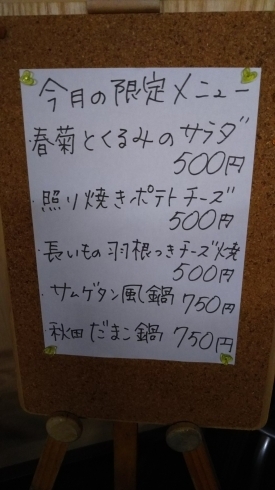 今月の限定メニュー
・春菊とくるみのサラダ
500円
・照り焼きポテトチーズ
500円
・長いもの羽根つきチーズ焼
500円
・サムゲタン風鍋 750円
・秋田だまこ鍋 750円